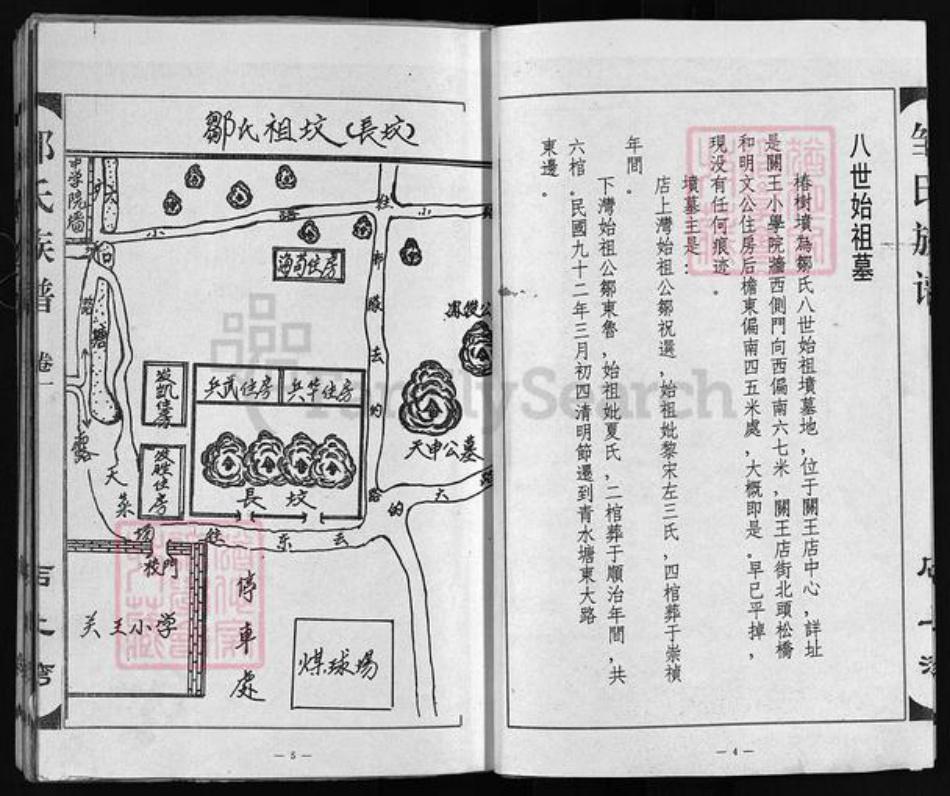 八世始祖墓
椿樹墳為鄒氏八世始祖墳墓地，位于關王店中心，詳址
是關王小學院牆西側門向西偏南六七米，關王店街北頭松橋
和明文公住房后檐東偏南四五米處，大概即是。早已平掉，
現没有任何痕迹。
墳墓主是：
店上灣始祖公鄒祝選，始祖妣黎宋左三氏，四棺葬于崇禎
年間。
下灣始祖公鄒東魯，始祖妣夏氏，二棺葬于順治年間，共
六棺。民國九十二年三月初四清明節遷到青水塘東大路
東邊。
—4—
鄒氏祖坟（長坟）
中学院牆
小
路
往
小
海苟住房
部
隊
去
的
路
发凯住房
发胜住房
兵武住房
兵华住房
長坟
天申公墓
大
的
天
菜
场
往
东
去
校門
关王小学
停車處
煤球場
—5—
族譜
卷一
店上灣
FamilySearch